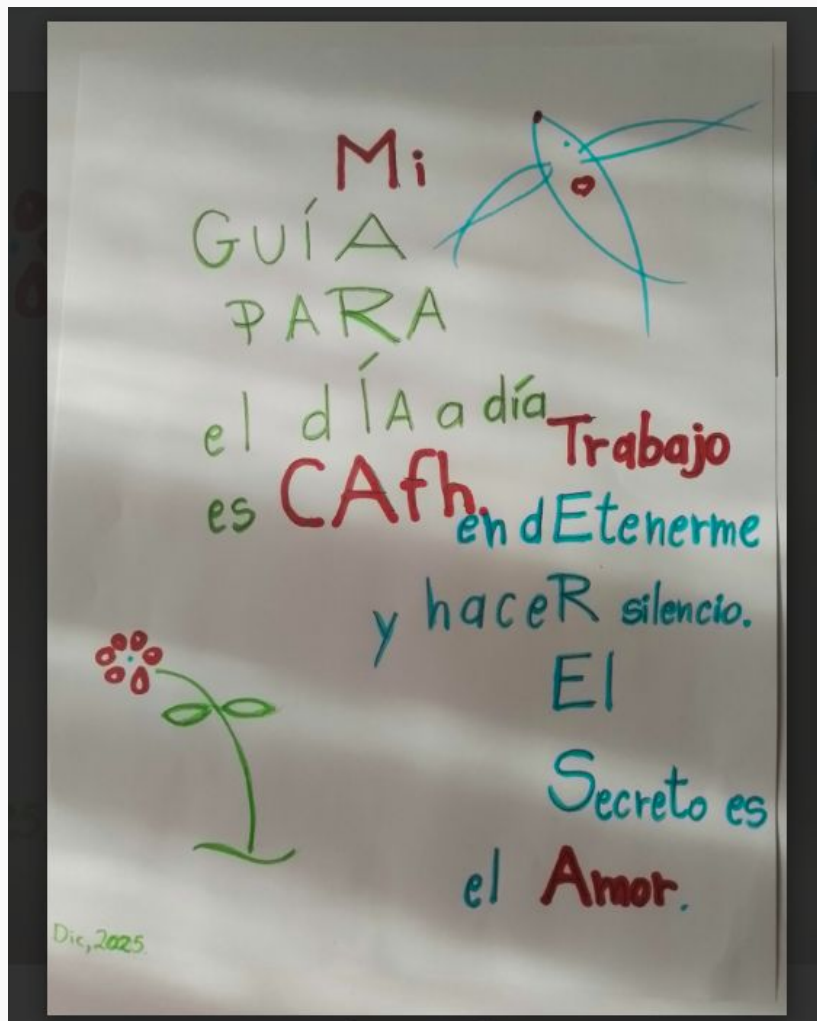 Mi
GUÍA
PARA
el dÍA a día
es CAfh.
Trabajo
en dEtenerme
y haceR silencio.
El
Secreto es
el Amor.
Dic, 2025